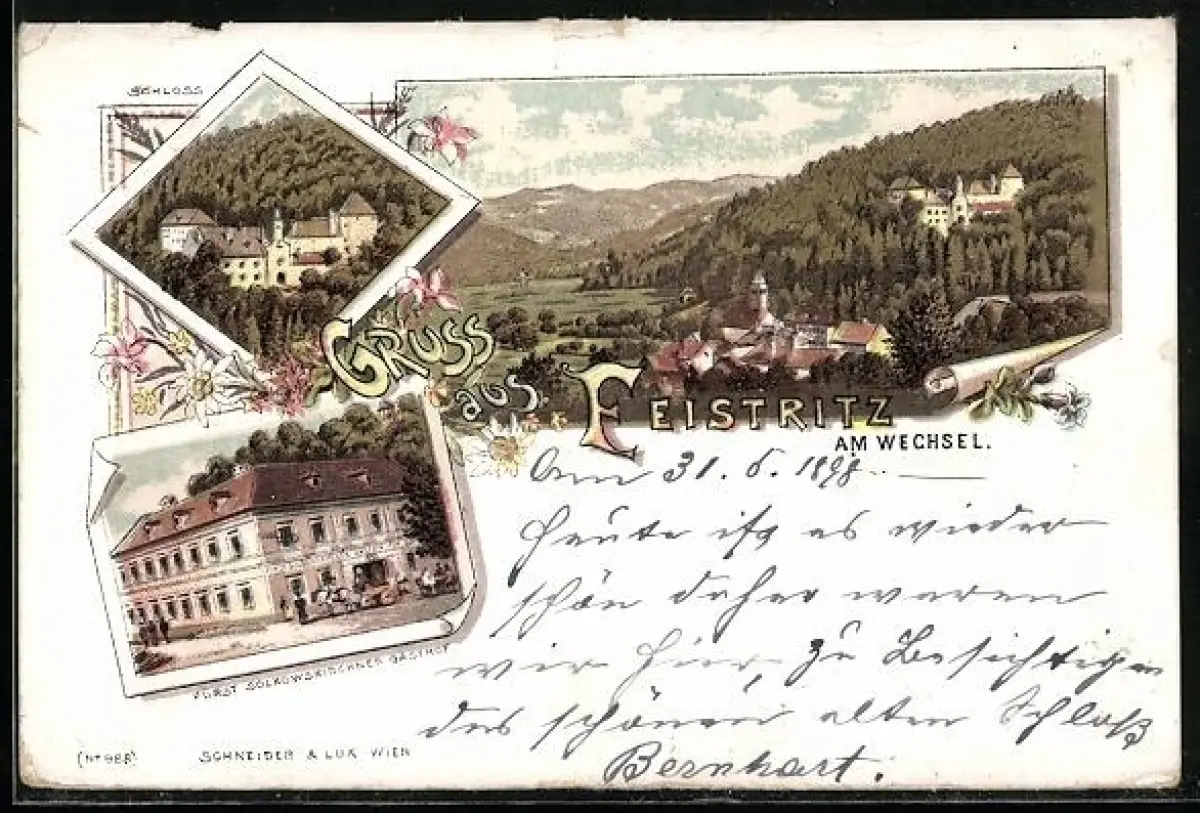 SCHLOSS
GRUSS
aus
FEISTRITZ
AM WECHSEL.
31. 1898
Heute ist es wieder
schön daher waren
wir hier, zu Besichtigen
des schönen alten Schloß
Bernhart.
FÜRST SULKOWSKI'SCHES GASTHOF
(No 988)
SCHNEIDER & LUX WIEN